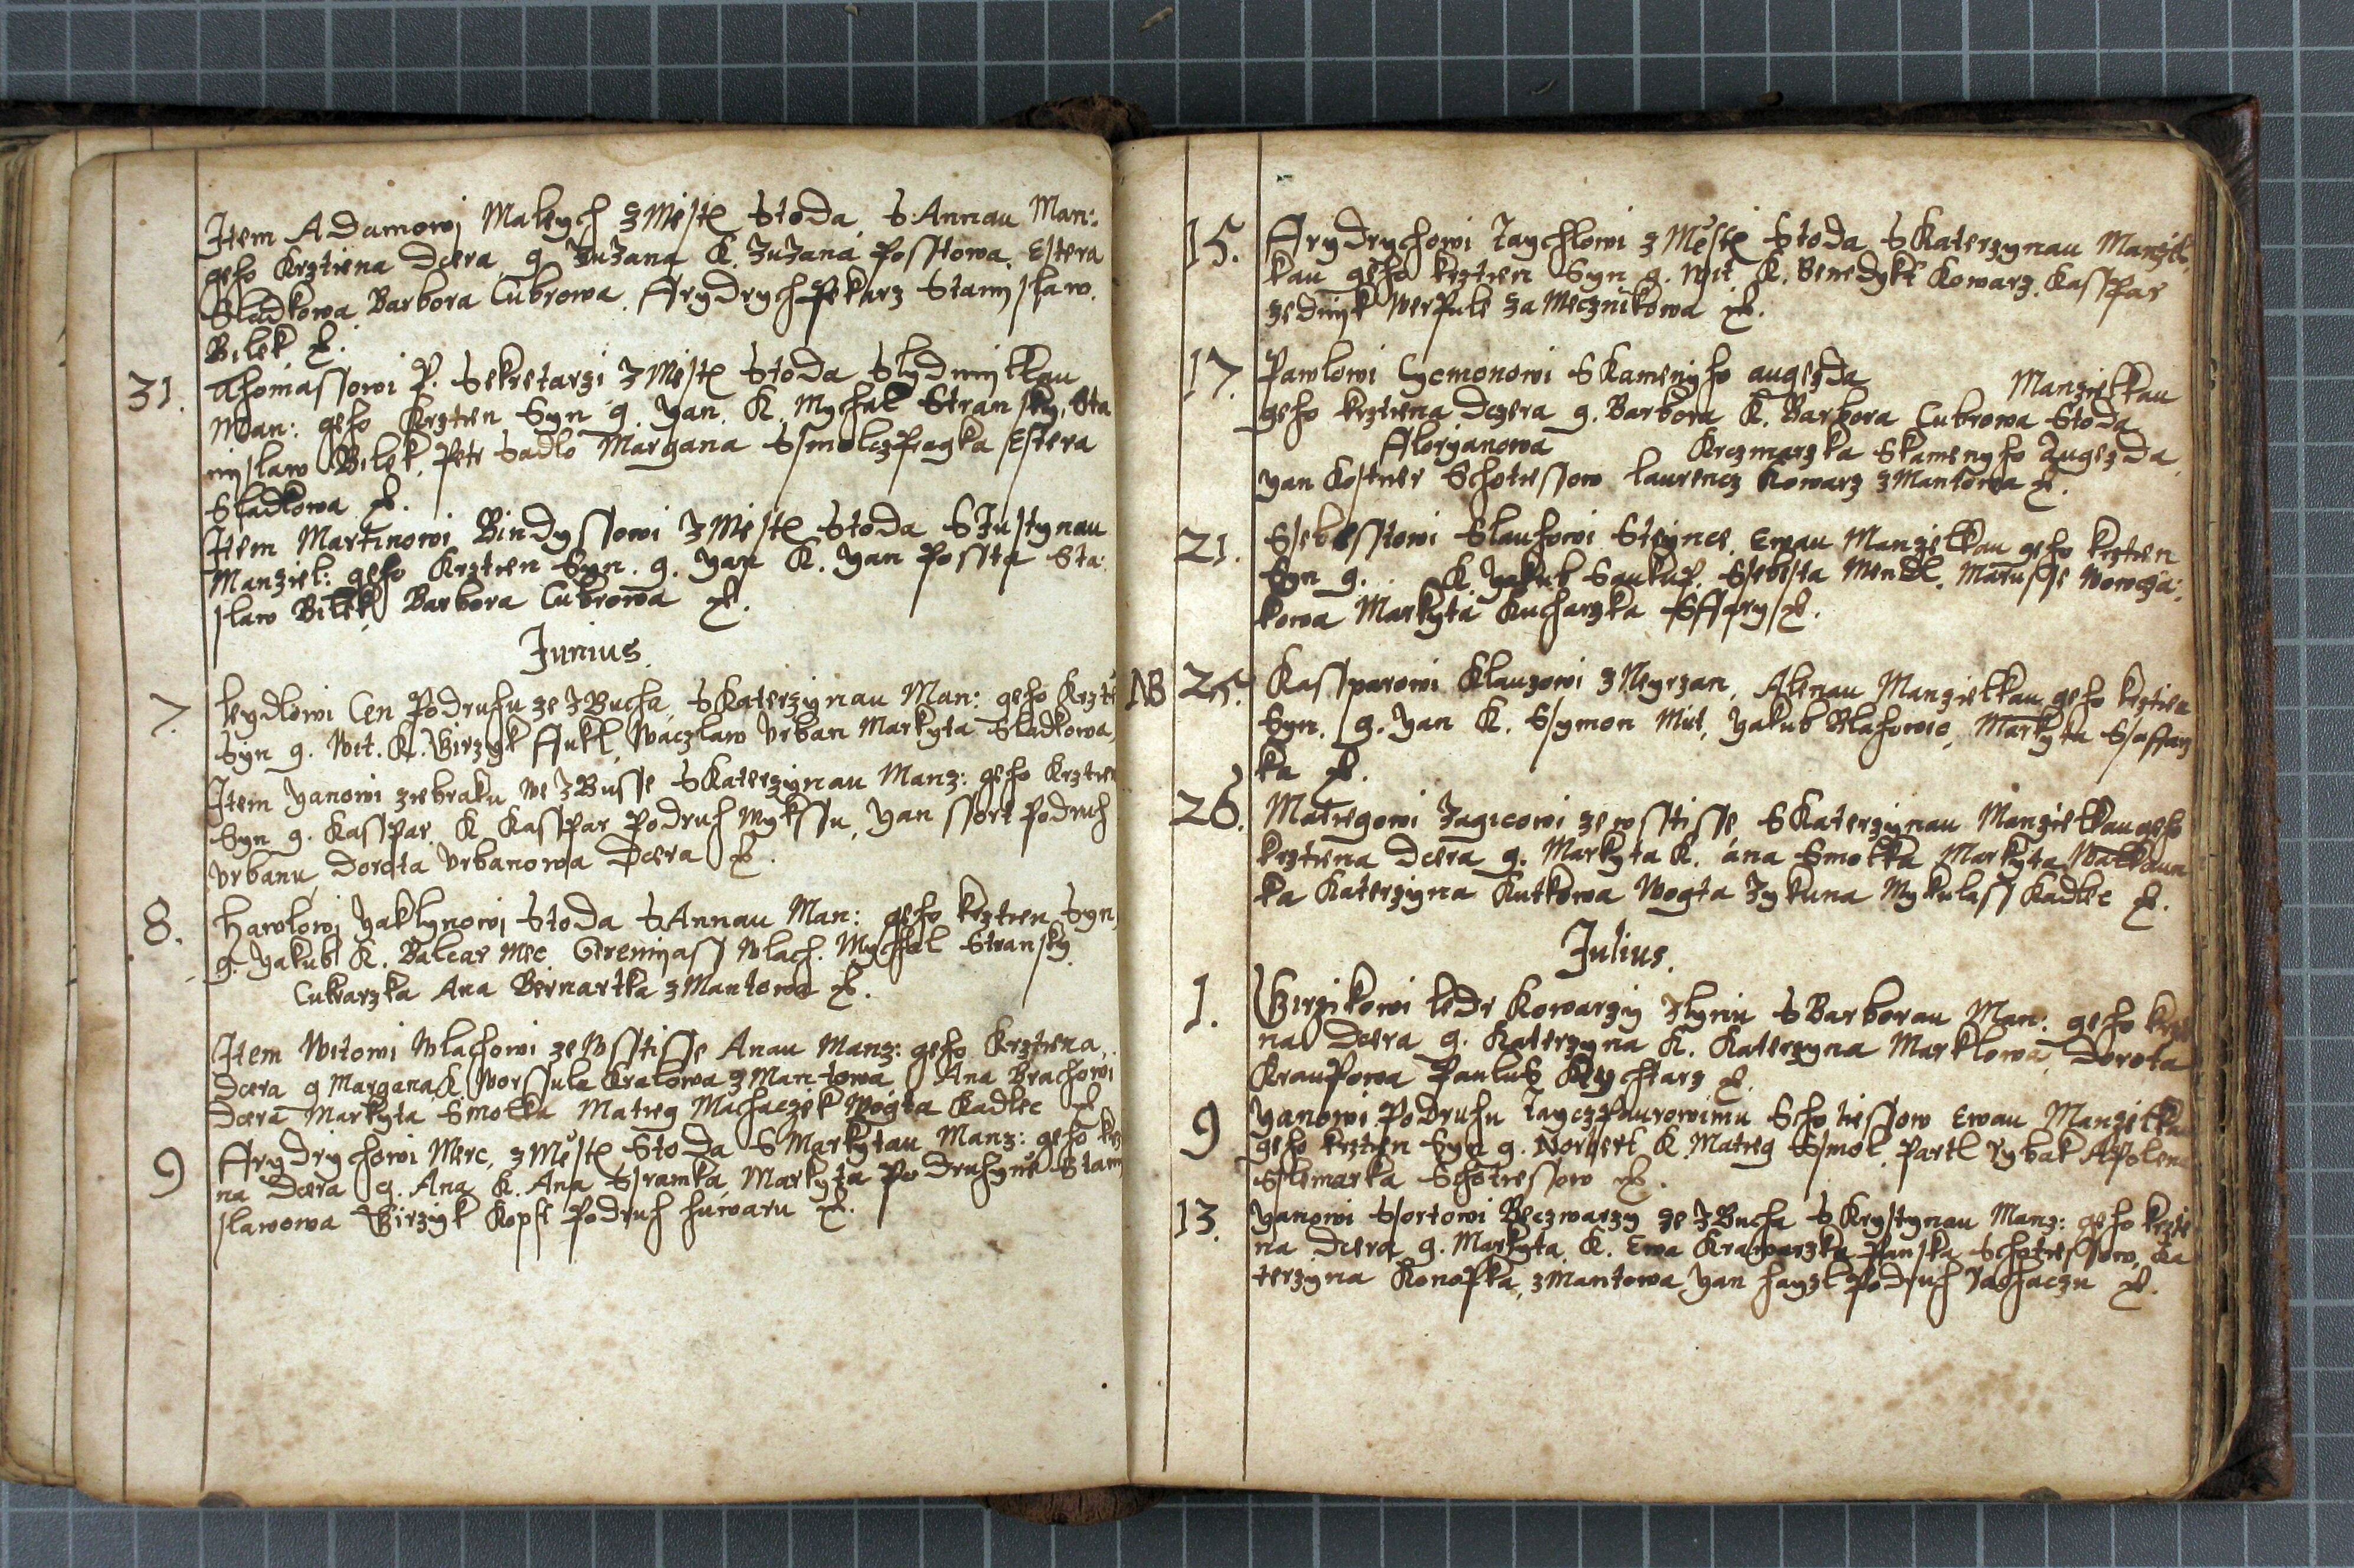 Item Adamowj Malých z Mesta Stoda, S. Annau Man:
geho Krztiena Dcera g. Zuzana K. Zuzana Posstowa. Estera
Sladkowa Barbora Cubrowa, Frydrych Pekarz Stanislaw.
Bilek
31. Thomassowi P. Sekretarzi z Mesta Stoda S Lydmilkau
Man: geho Krztien Syn g. Yan. K. Mychal Stransky, Sta
nyslaw Bilek, Petr Sadlo Margana Estera
Sladkowa
Item Martinowi Bindyssowi z Mesta Stoda S Justynau
Manziel: geho Krztien Syn. g. Yan K. Yan Possta Sta:
slaw Bilek, Barbora Cubrowa
Junius.
7. Cen Podruhu ze Zbucha, S Katerzynau Man: geho Krzti
Syn g. Wit. K. Girzyk Fukl, Waczlaw Vrban Markyta Sladkowa,
Item Yanowi ziebraku we Zbusse S Katerzynau Manz: geho Krztien
Syn g. Kasspar K Kasspar Podruh Mykssu, Yan ssort Podruh
Vrbanu, Dorota Vrbanowa Dcera
8. Hawlowi Yaklynowi Stoda S Annau Man: geho krztien Syn,
g. Yakub K. Balcar Mec Geremyass Wlach. Mychal Stransky
Cukrarzka Ana Bernartka z Mantowa
Item Witowi Wlachowi ze Wsstisse Anau Manz: geho Krztiena,
Dcera g Margana K Worssula Kralowa z Mantowa Ana Brachowi
Dcera Markyta Smolka Matieg Machaczek Wogta Kadlec
9 Frydrychowi Merc, z Mesta Stoda S Markytau Manz: geho krz
na Dcera g. Ana K. Ana Ssramka Markyta Podruhyne Stany
slawowa Girzyk Kopst Podruh huwaru
15. Frydrychowi Taychlowi z Mesta Stoda S Katerzynau Manziel
kau geho krztien Syn g. Wit. K. Benedykt Kowarz, Kasspar
zednyk Werpule za Mecznikowa
17. Pawlowi Cycmonowi S Kamenyho augezda Manzielkau
geho krztiena dczera g. Barbora K. Barbora Cubrowa Stoda
Florganowa Krczmarzka S kamenyho Augezda
Yan Kostner Schotiessow laurencz Kowarz z Mantowa
21. Ssebesstowi Slauhowi Steynce, Ewau Manzielkau geho krztien
Syn g. K. Yakub Saukup. Ssebesta Mendl. Marusse Nowcza:
kowa Markyta Kucharzka S Fary
NB 25. Kassparowi Klauzowi z Neyrzan, Alenau Manzielkau geho krztien
Syn. g. Yan K. Ssymon Mut, Yakub Blahowic, Markyta Ssaffarz
ka
26. Matiegowi Zagicowi ze wsstisse, S Katerzynau Manzielkau geho
krztiena Dcera g. Markyta K. ana Smolka Markyta Walkaun
ka Katerzyna Kutkowa Wogta Zykuna Mykulass Kadlec
Julius.
1. Girzikowi ledr Kowarzy S Barborau Man: geho krzt
na Dcera g. Katerzyna K. Katerzyna Marklowa, Dorota
Kraupowa Paulus Rychtarz
9 Yanowi Podruhu Schotiessow Ewau Manzielkau
geho krztien Syn g. Norbert K Matieg Ssmol, Partl Rybak Apolena
Schotiessow
13. Yanowi Ssortowi Beczwarzy ze Zbucha S Krystynau Manz: geho krztie
na Dcera g. Markyta K. Ewa Krawarzka Panska Schotiessow, Ka
terzyna Konopka, z Mantowa Yan Hayzl Podruh